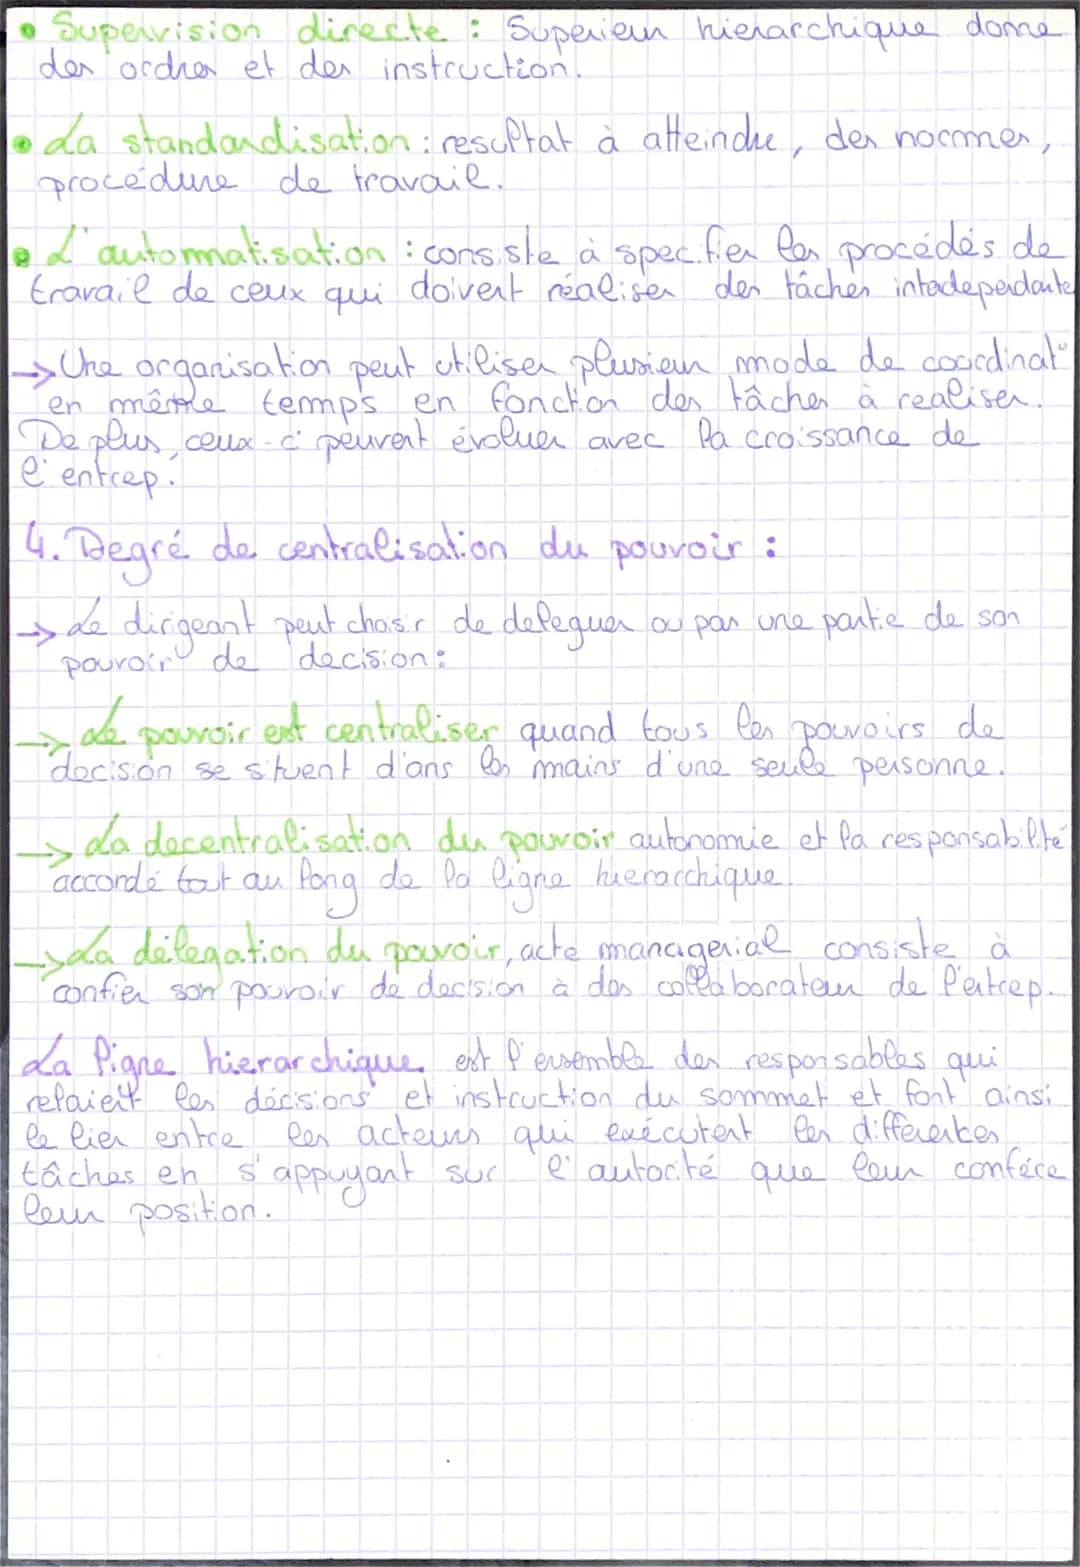 • Supervision directe : Superieur hierarchique donne
des ordres et des instruction.
• La standardisation : resultat à atteindre, des normes,
procédure de travail.
• L'automatisation : consiste à specifier les procédés de
travail de ceux qui doivent réaliser des tâches intedependante
→ Une organisation peut utiliser plusieur mode de coordinat°
en même temps en fonction des tâches à realiser.
De plus, ceux-ci peuvent évoluer avec la croissance de
l'entrep.
4. Degré de centralisation du pouvoir :
→ Le dirigeant peut choisir de deleguer ou pas une partie de son
pouvoir de decision :
→ Le pouvoir est centraliser quand tous les pouvoirs de
decision se situent d'ans les mains d'une seule personne.
→ La decentralisation du pouvoir autonomie et la responsabilité
accordé tout au long de la ligne hierarchique.
→ La délegation du pouvoir, acte managerial consiste à
confier son pouvoir de decision à des collaborateur de l'entrep.
La ligne hierarchique est l'ensemble des responsables qui
relaient les décisions et instruction du sommet et font ainsi
le lien entre les acteurs qui exécutent les différentes
tâches en s'appuyant sur l'autorité que leur confére
leur position.